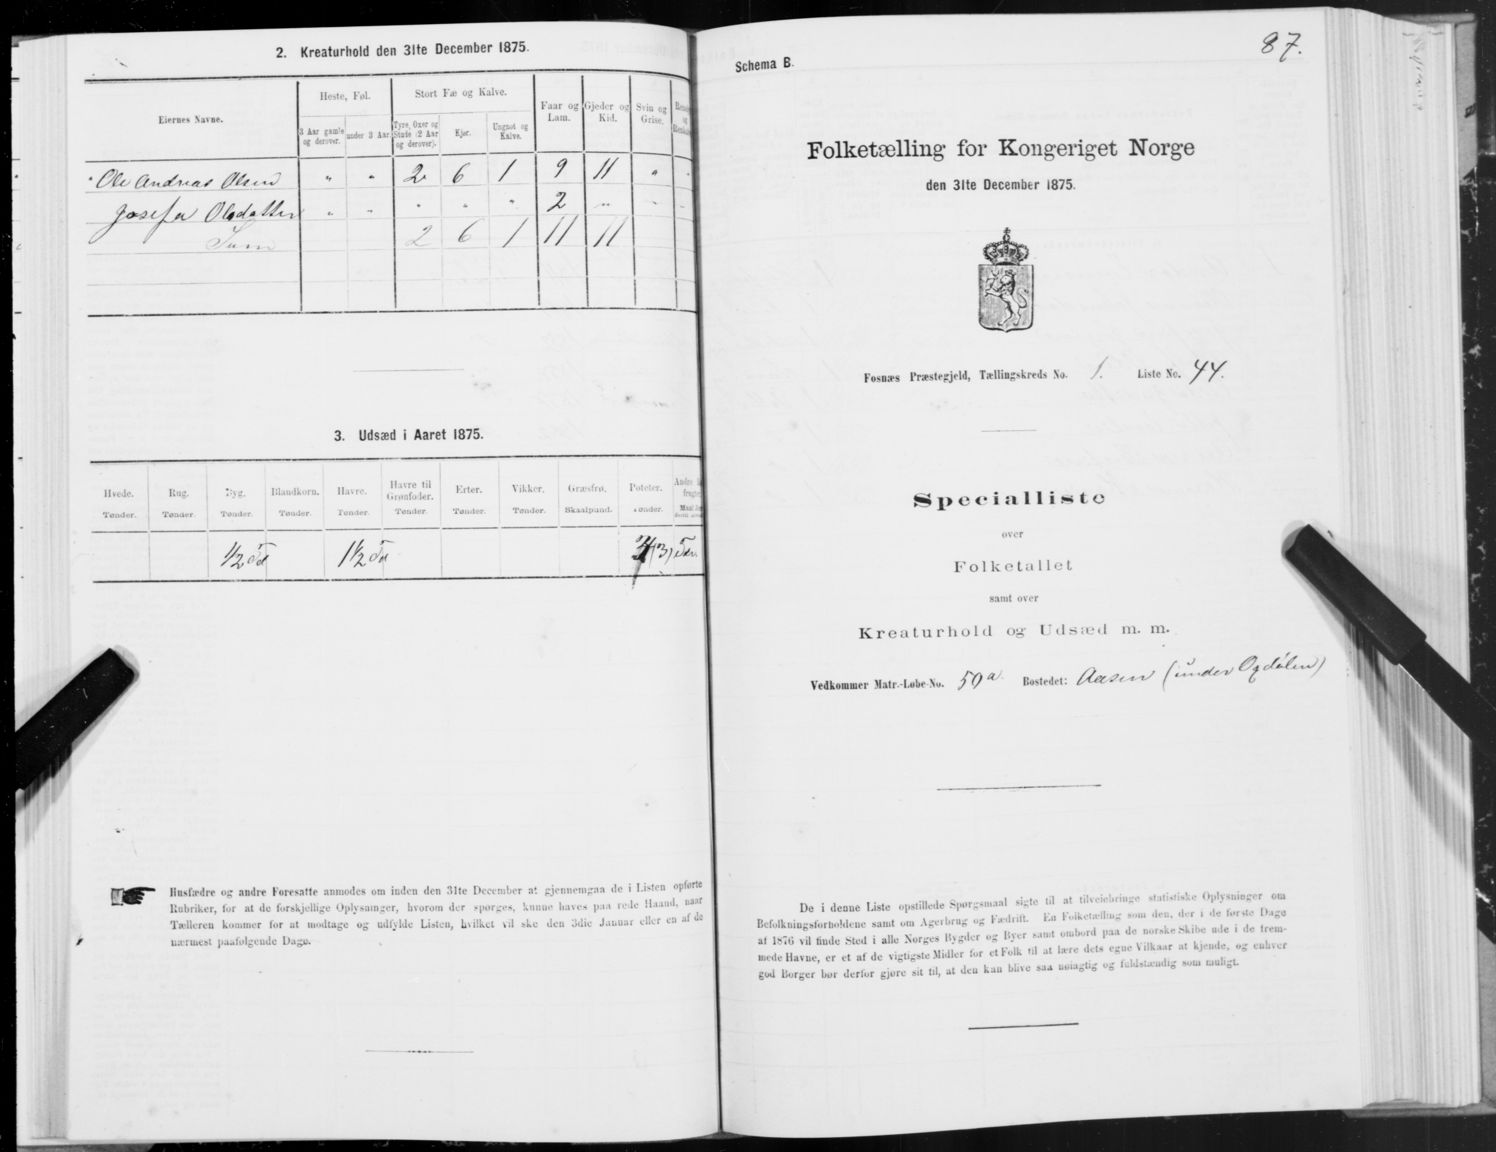 2. Kreaturhold den 31te December 1875.
Eiernes Navne.
Heste, Føl.
3 Aar gamle og derover.
under 3 Aar.
Stort Fæ og Kalve.
Tyre, Oxer og Stude (2 Aar og derover).
Kjør.
Ungnøt og Kalve.
Faar og Lam.
Gjeder og Kid.
Svin og Grise.
Ole Andreas Olsen " " 2 6 1 9 11 " "
Josefa Olsdatter " " " " " 2 " " "
Sum 2 6 1 11 11
3. Udsæd i Aaret 1875.
Hvede. Rug. Byg. Blandkorn. Havre. Havre til Grønfoder. Erter. Vikker. Græsfrø. Poteter.
Tønder. Tønder. Tønder. Tønder. Tønder. Tønder. Tønder. Tønder. Skaalpund. Tønder.
1/2 Td 1 1/2 Td (3) Tdr.
Husfædre og andre Foresatte anmodes om inden den 31te December at gjennemgaa de i Listen opførte
Rubriker, for at de forskjellige Oplysninger, hvorom der spørges, kunne haves paa rede Haand, naar
Tælleren kommer for at modtage og udfylde Listen, hvilket vil ske den 3die Januar eller en af de
nærmest paafølgende Dage.
87.
Schema B.
Folketælling for Kongeriget Norge
den 31te December 1875.
Fosnæs Præstegjeld, Tællingskreds No. 1. Liste No. 44.
Specialliste
over
Folketallet
samt over
Kreaturhold og Udsæd m. m.
Vedkommer Matr.-Løbe-No. 59a. Bostedet: Aasen (under Opdølen)
De i denne Liste opstillede Spørgsmaal sigte til at tilveiebringe statistiske Oplysninger om
Befolkningsforholdene samt om Agerbrug og Fædrift. En Folketælling som den, der i de første Dage
af 1876 vil finde Sted i alle Norges Bygder og Byer samt ombord paa de norske Skibe ude i de frem-
mede Havne, er et af de vigtigste Midler for et Folk til at lære dets egne Vilkaar at kjende, og enhver
god Borger bør derfor gjøre sit til, at den kan blive saa nøiagtig og fuldstændig som muligt.